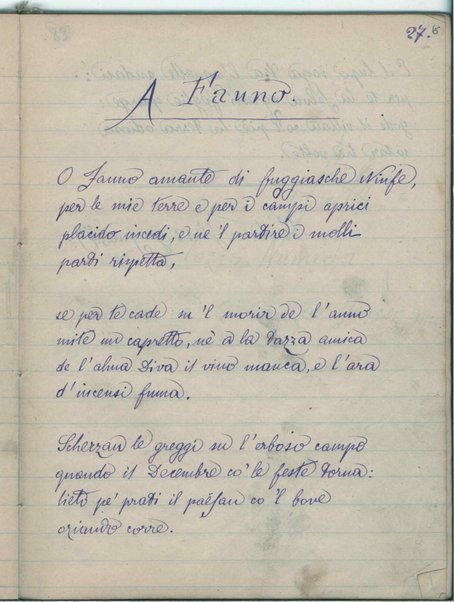 27.
A Fauno.
O Fauno amante di fuggiasche Ninfe,
per le mie terre e per i campi aprici
placido incedi, e ne 'l partire i molli
parti rispetta,
se per te cade su 'l morir de l'anno
mite un capretto, nè a la tazza amica
de l'alma Diva il vino manca, e l'ara
d'incensi fuma.
Scherzan le greggi su l'erboso campo
quando il Decembre co' le feste torna:
lieto pe' prati il paësan co 'l bove
oziando corre.